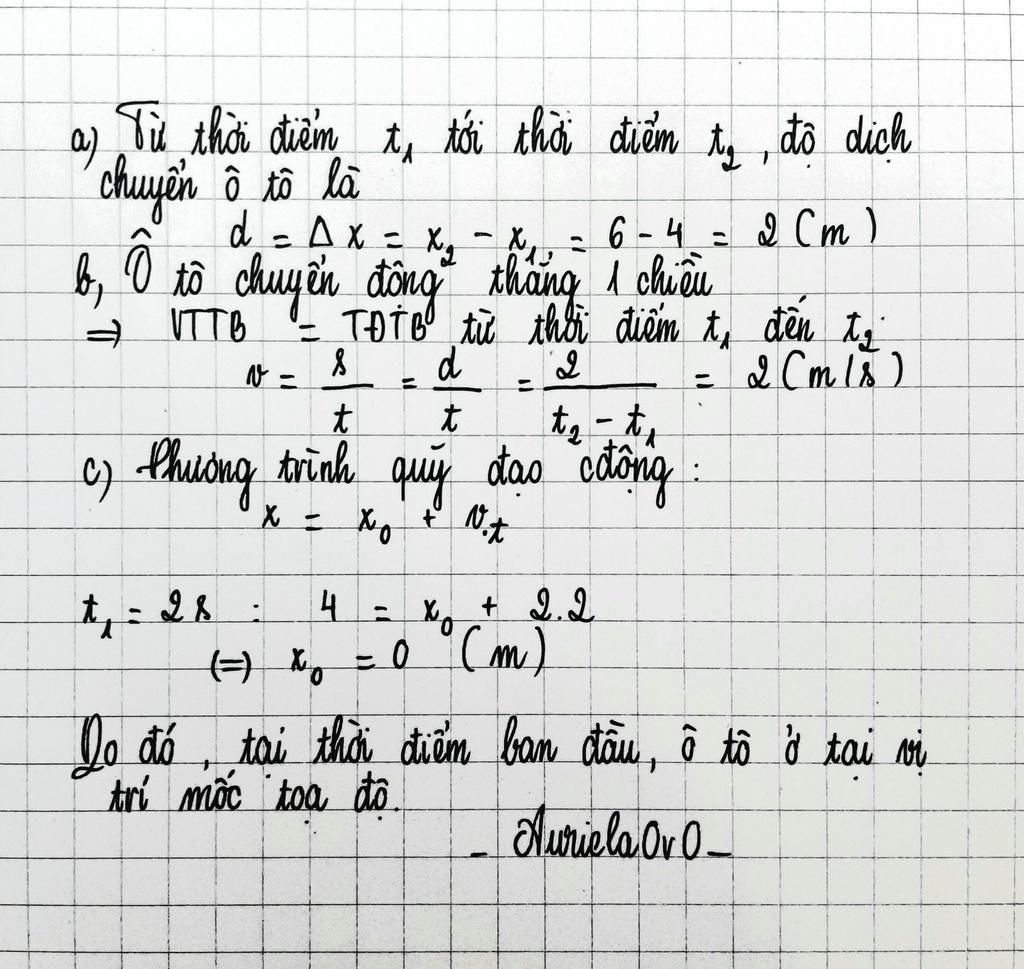 a) Từ thời điểm t₁ tới thời điểm t₂, độ dịch
chuyển ô tô là
d = Δx = x₂ - x₁ = 6 - 4 = 2 (m)
b, Ô tô chuyển động thẳng 1 chiều
⇒ VTTB = TĐTB từ thời điểm t₁ đến t₂.
v = s/t = d/t = 2/(t₂ - t₁) = 2 (m/s)
c) Phương trình quỹ đạo cđộng :
x = x₀ + v.t
t₁ = 2s : 4 = x₀ + 2.2
(=) x₀ = 0 (m)
Do đó, tại thời điểm ban đầu, ô tô ở tại vị
trí mốc tọa độ.
- Auriela0v0 -